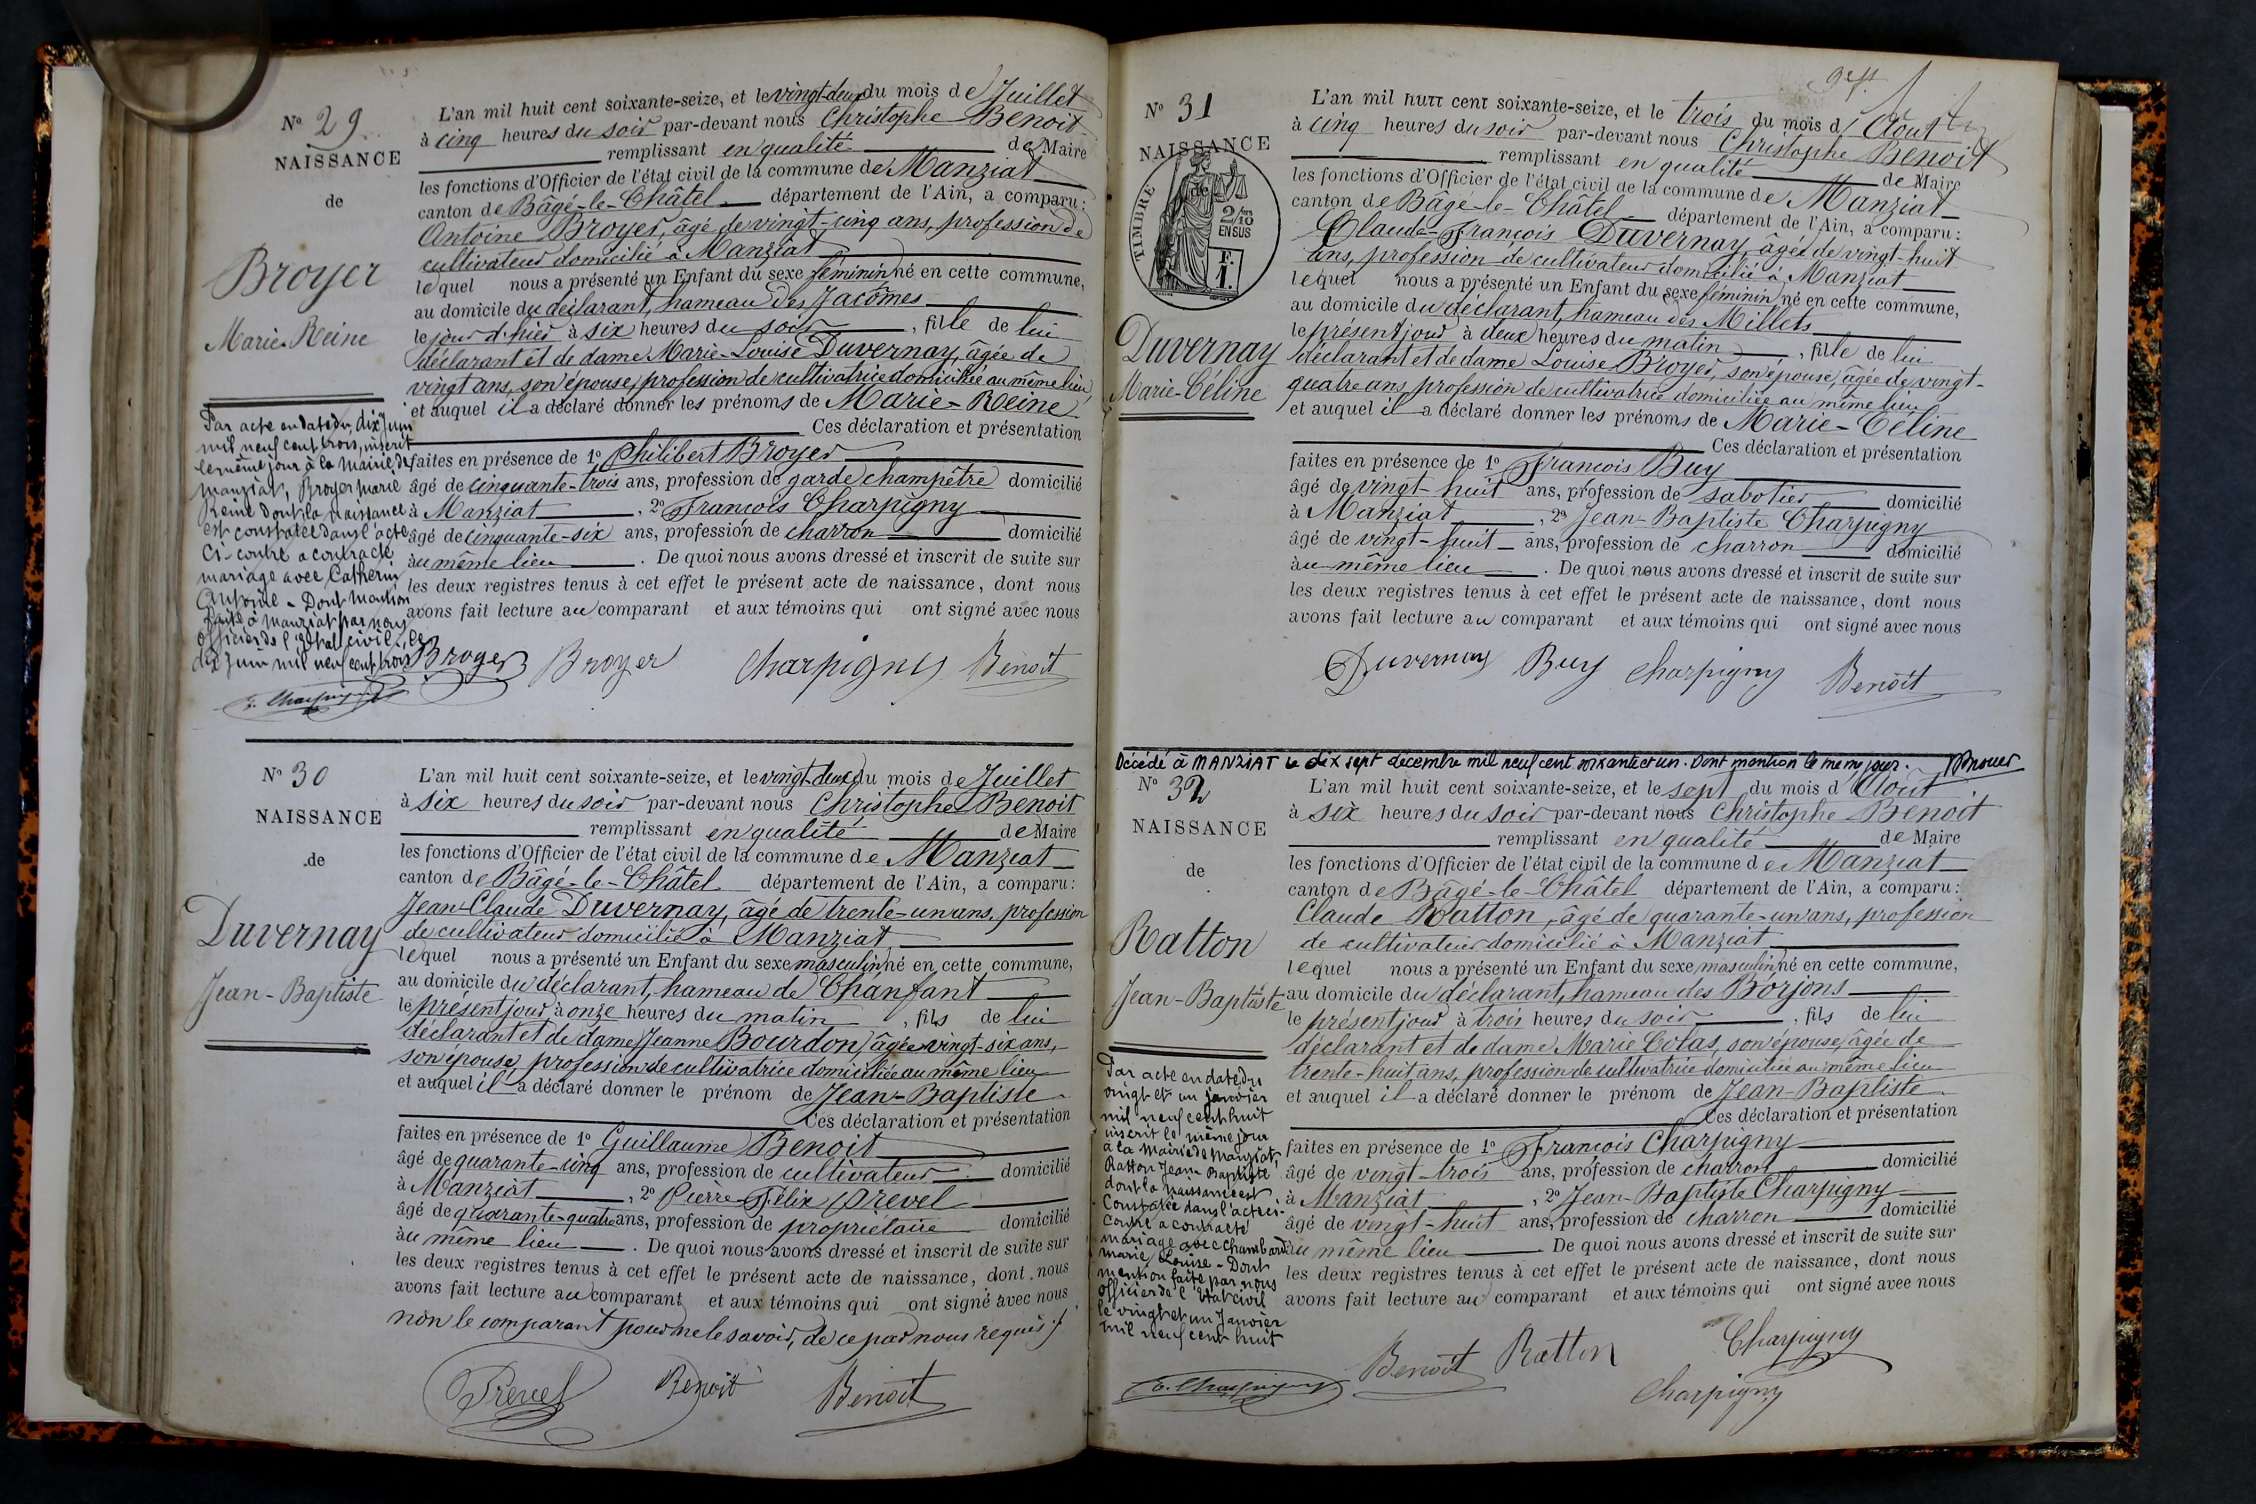 N° 29
NAISSANCE
de
Broyer
Marie-Reine
Par acte en date du dix Juin
mil neuf cent trois, inscrit
le même jour à la mairie de
Manziat, Broyer Marie
Reine dont la naissance
est constatée dans l'acte
ci-contre a contracté
mariage avec Catherin
Antoine - Dont mention
faite à Manziat par nous
officier de l'état civil le
dix Juin mil neuf cent trois
L'an mil huit cent soixante-seize, et le vingt-deux du mois de Juillet
à cinq heures du soir par-devant nous Christophe Benoit
remplissant en qualité de Maire
les fonctions d'Officier de l'état civil de la commune de Manziat
canton de Bâgé-le-Châtel département de l'Ain, a comparu:
Antoine Broyer, âgé de vingt-cinq ans, profession de
cultivateur domicilié à Manziat
lequel nous a présenté un Enfant du sexe féminin né en cette commune,
au domicile du déclarant, hameau des Jacômes
le jour d'hier à six heures du soir, fille de lui
déclarant et de dame Marie-Louise Duvernay, âgée de
vingt ans, son épouse, profession de cultivatrice domiciliée au même lieu
et auquel il a déclaré donner les prénoms de Marie-Reine
Ces déclaration et présentation
faites en présence de 1° Philibert Broyer
âgé de cinquante-trois ans, profession de garde champêtre domicilié
à Manziat, 2° François Charpigny
âgé de cinquante-six ans, profession de charron domicilié
au même lieu. De quoi nous avons dressé et inscrit de suite sur
les deux registres tenus à cet effet le présent acte de naissance, dont nous
avons fait lecture au comparant et aux témoins qui ont signé avec nous
Broyer Broyer Charpigny Benoit
N° 30
NAISSANCE
de
Duvernay
Jean-Baptiste
L'an mil huit cent soixante-seize, et le vingt-deux du mois de Juillet
à six heures du soir par-devant nous Christophe Benoit
remplissant en qualité de Maire
les fonctions d'Officier de l'état civil de la commune de Manziat
canton de Bâgé-le-Châtel département de l'Ain, a comparu:
Jean-Claude Duvernay, âgé de trente-un ans, profession
de cultivateur domicilié à Manziat
lequel nous a présenté un Enfant du sexe masculin né en cette commune,
au domicile du déclarant, hameau de Chanfant
le présent jour à onze heures du matin, fils de lui
déclarant et de dame Jeanne Bourdon, âgée vingt-six ans,
son épouse, profession de cultivatrice domiciliée au même lieu
et auquel il a déclaré donner le prénom de Jean-Baptiste
Ces déclaration et présentation
faites en présence de 1° Guillaume Benoit
âgé de quarante-cinq ans, profession de cultivateur domicilié
à Manziat, 2° Pierre-Félix Prevel
âgé de quarante-quatre ans, profession de propriétaire domicilié
au même lieu. De quoi nous avons dressé et inscrit de suite sur
les deux registres tenus à cet effet le présent acte de naissance, dont nous
avons fait lecture au comparant et aux témoins qui ont signé avec nous
non le comparant pour ne le savoir, de ce par nous requis
Prevel Benoit Benoit
N° 31
NAISSANCE
de
TIMBRE
2/10
EN SUS
F.
1.
Duvernay
Marie-Céline
L'an mil huit cent soixante-seize, et le trois du mois d'Août
à cinq heures du soir par-devant nous Christophe Benoit
remplissant en qualité de Maire
les fonctions d'Officier de l'état civil de la commune de Manziat
canton de Bâgé-le-Châtel département de l'Ain, a comparu:
Claude-François Duvernay, âgé de vingt-huit
ans, profession de cultivateur domicilié à Manziat
lequel nous a présenté un Enfant du sexe féminin né en cette commune,
au domicile du déclarant, hameau des Millets
le présent jour à deux heures du matin, fille de lui
déclarant et de dame Louise Broyer, son épouse, âgée de vingt-
quatre ans, profession de cultivatrice domiciliée au même lieu
et auquel il a déclaré donner les prénoms de Marie-Céline
Ces déclaration et présentation
faites en présence de 1° François Buy
âgé de vingt-huit ans, profession de sabotier domicilié
à Manziat, 2° Jean-Baptiste Charpigny
âgé de vingt-huit ans, profession de charron domicilié
au même lieu. De quoi nous avons dressé et inscrit de suite sur
les deux registres tenus à cet effet le présent acte de naissance, dont nous
avons fait lecture au comparant et aux témoins qui ont signé avec nous
Duvernay Buy Charpigny Benoit
Décédé à MANZIAT le dix sept décembre mil neuf cent soixante et un. Dont mention le même jour.
N° 32
NAISSANCE
de
Ratton
Jean-Baptiste
Par acte en date du
vingt et un janvier
mil neuf cent huit
inscrit le même jour
à la mairie de Manziat,
Ratton Jean-Baptiste
dont la naissance est
constatée dans l'acte ci-
contre a contracté
mariage avec Chambard
Marie Louise - Dont
mention faite par nous
officier de l'état civil
le vingt et un Janvier
mil neuf cent huit
L'an mil huit cent soixante-seize, et le sept du mois d'Août
à six heures du soir par-devant nous Christophe Benoit
remplissant en qualité de Maire
les fonctions d'Officier de l'état civil de la commune de Manziat
canton de Bâgé-le-Châtel département de l'Ain, a comparu:
Claude Ratton, âgé de quarante-un ans, profession
de cultivateur domicilié à Manziat
lequel nous a présenté un Enfant du sexe masculin né en cette commune,
au domicile du déclarant, hameau des Borjons
le présent jour à trois heures du soir, fils de lui
déclarant et de dame Marie Cotas, son épouse, âgée de
trente-huit ans, profession de cultivatrice domiciliée au même lieu
et auquel il a déclaré donner le prénom de Jean-Baptiste
Ces déclaration et présentation
faites en présence de 1° François Charpigny
âgé de vingt-trois ans, profession de charron domicilié
à Manziat, 2° Jean-Baptiste Charpigny
âgé de vingt-huit ans, profession de charron domicilié
au même lieu. De quoi nous avons dressé et inscrit de suite sur
les deux registres tenus à cet effet le présent acte de naissance, dont nous
avons fait lecture au comparant et aux témoins qui ont signé avec nous
Benoit Ratton Charpigny
Charpigny